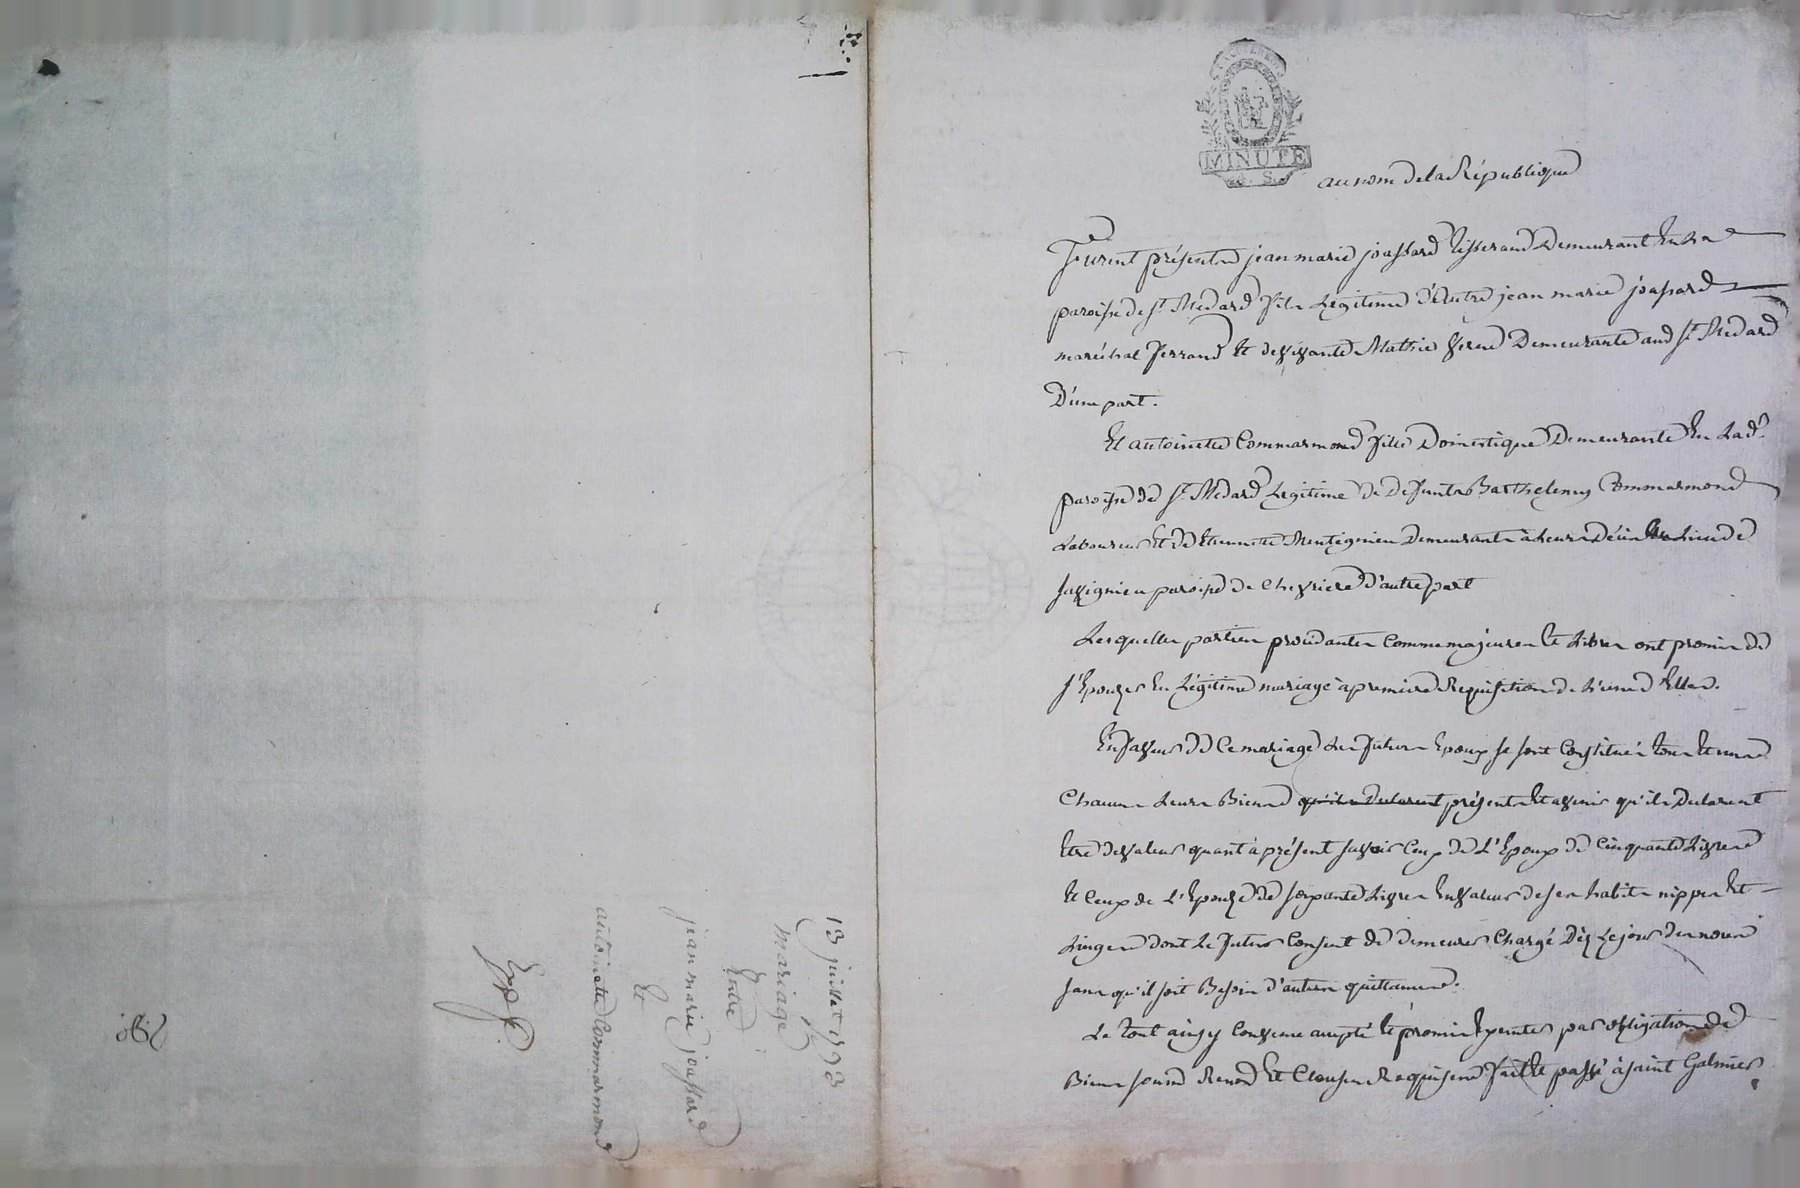 13 juillet 1793
mariage
Entre
jean marie joassard
Et
antoinette Commarmond
Exp.
MINUTE
au nom de la République
Furent présents jean marie joassard tisserand Demeurant En La
paroisse de St. Medard fils Legitime d'autre jean marie joassard
maréchal ferrand Et de vivante Mathie Demeurante aud St. Medard
D'une part.
Et antoinette Commarmond fille Domestique Demeurante En Lad.
paroisse de St. Medard Legitime de Defunts Barthelemy Commarmond
Laboureur Et de Etiennette Demeurants à Leurs Décès Lieu de
Savignieu paroisse de Chevrieres d'autre part
Lesquelles parties procédantes Comme majeures Et Libres ont promis de
s'Epouser En Légitime mariage à premiere Requisition de L'une d'Elles.
En faveur de Ce mariage Les futurs Epoux se sont Constitués tous Et uns
Chacuns Leurs Biens qu'ils Declarent présents Et avenir qu'ils Declarent
Etre de valeur quant à présent savoir Ceux de L'Epoux de Cinquante Livres
Et Ceux de L'Epouse de soixante Livres En valeur de ses habits nippes Et
Linges dont Le futur Consent de demeurer Chargé Dès Le jour des noces
sans qu'il soit Besoin d'autres quittances.
Le tout ainsy Convenu accepté Et promis par obligation de
Biens soumis Renon Et Clauses Requises fait Et passé à saint Galmier